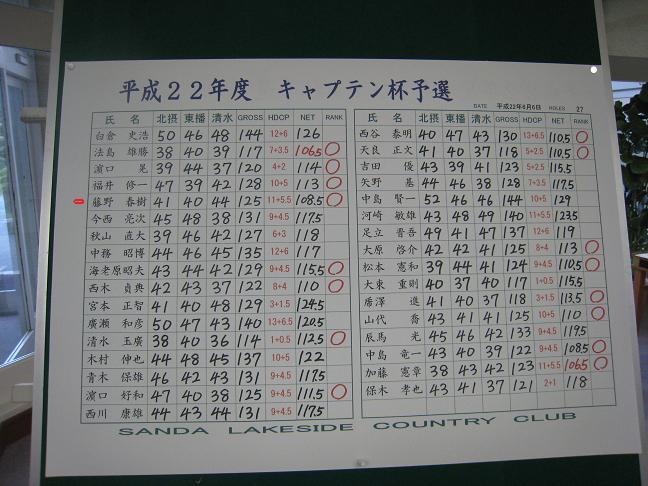 平成22年度 キャプテン杯予選
DATE 平成22年6月6日 HOLES 27
氏 名 北摂 東播 清水 GROSS HDCP NET RANK
白倉 史浩 50 46 48 144 12+6 126
法島 雄勝 38 40 39 117 7+3.5 106.5 ○
濵口 晃 39 44 37 120 4+2 114 ○
福井 修一 47 39 42 128 10+5 113 ○
藤野 春樹 41 40 44 125 11+5.5 108.5 ○
今西 亮次 45 48 38 131 9+4.5 117.5
秋山 直大 39 46 42 127 6+3 118
中務 昭博 44 46 45 135 12+6 117
海老原昭夫 43 44 42 129 9+4.5 115.5 ○
西木 貞典 42 43 37 122 8+4 110 ○
宮本 正智 41 40 48 129 3+1.5 124.5
廣瀬 和彦 50 47 43 140 13+6.5 120.5
清水 玉廣 38 40 36 114 1+0.5 112.5 ○
木村 伸也 44 48 45 137 10+5 122
青木 保雄 46 42 43 131 9+4.5 117.5
濵口 好和 47 40 38 125 9+4.5 111.5 ○
西川 康雄 44 43 44 131 9+4.5 117.5
氏 名 北摂 東播 清水 GROSS HDCP NET RANK
西谷 泰明 40 47 43 130 13+6.5 110.5 ○
天良 正文 41 40 37 118 5+2.5 110.5 ○
吉田 優 43 39 41 123 5+2.5 115.5
矢野 基 44 46 38 128 7+3.5 117.5
中島 賢一 52 46 46 144 10+5 129
河崎 敏雄 43 48 49 140 11+5.5 123.5
足立 晋吾 49 41 47 137 12+6 119
大原 啓介 42 42 41 125 8+4 113 ○
松本 憲和 39 44 41 124 9+4.5 110.5 ○
大東 重則 40 37 40 117 1+0.5 115.5
唐澤 進 41 40 37 118 3+1.5 113.5 ○
山代 喬 43 41 41 125 10+5 110 ○
辰馬 光 45 46 42 133 9+4.5 119.5
中島 竜一 43 40 39 122 9+4.5 108.5 ○
加藤 憲章 38 43 42 123 11+5.5 106.5 ○
保木 孝也 43 41 37 121 2+1 118
SANDA LAKESIDE COUNTRY CLUB